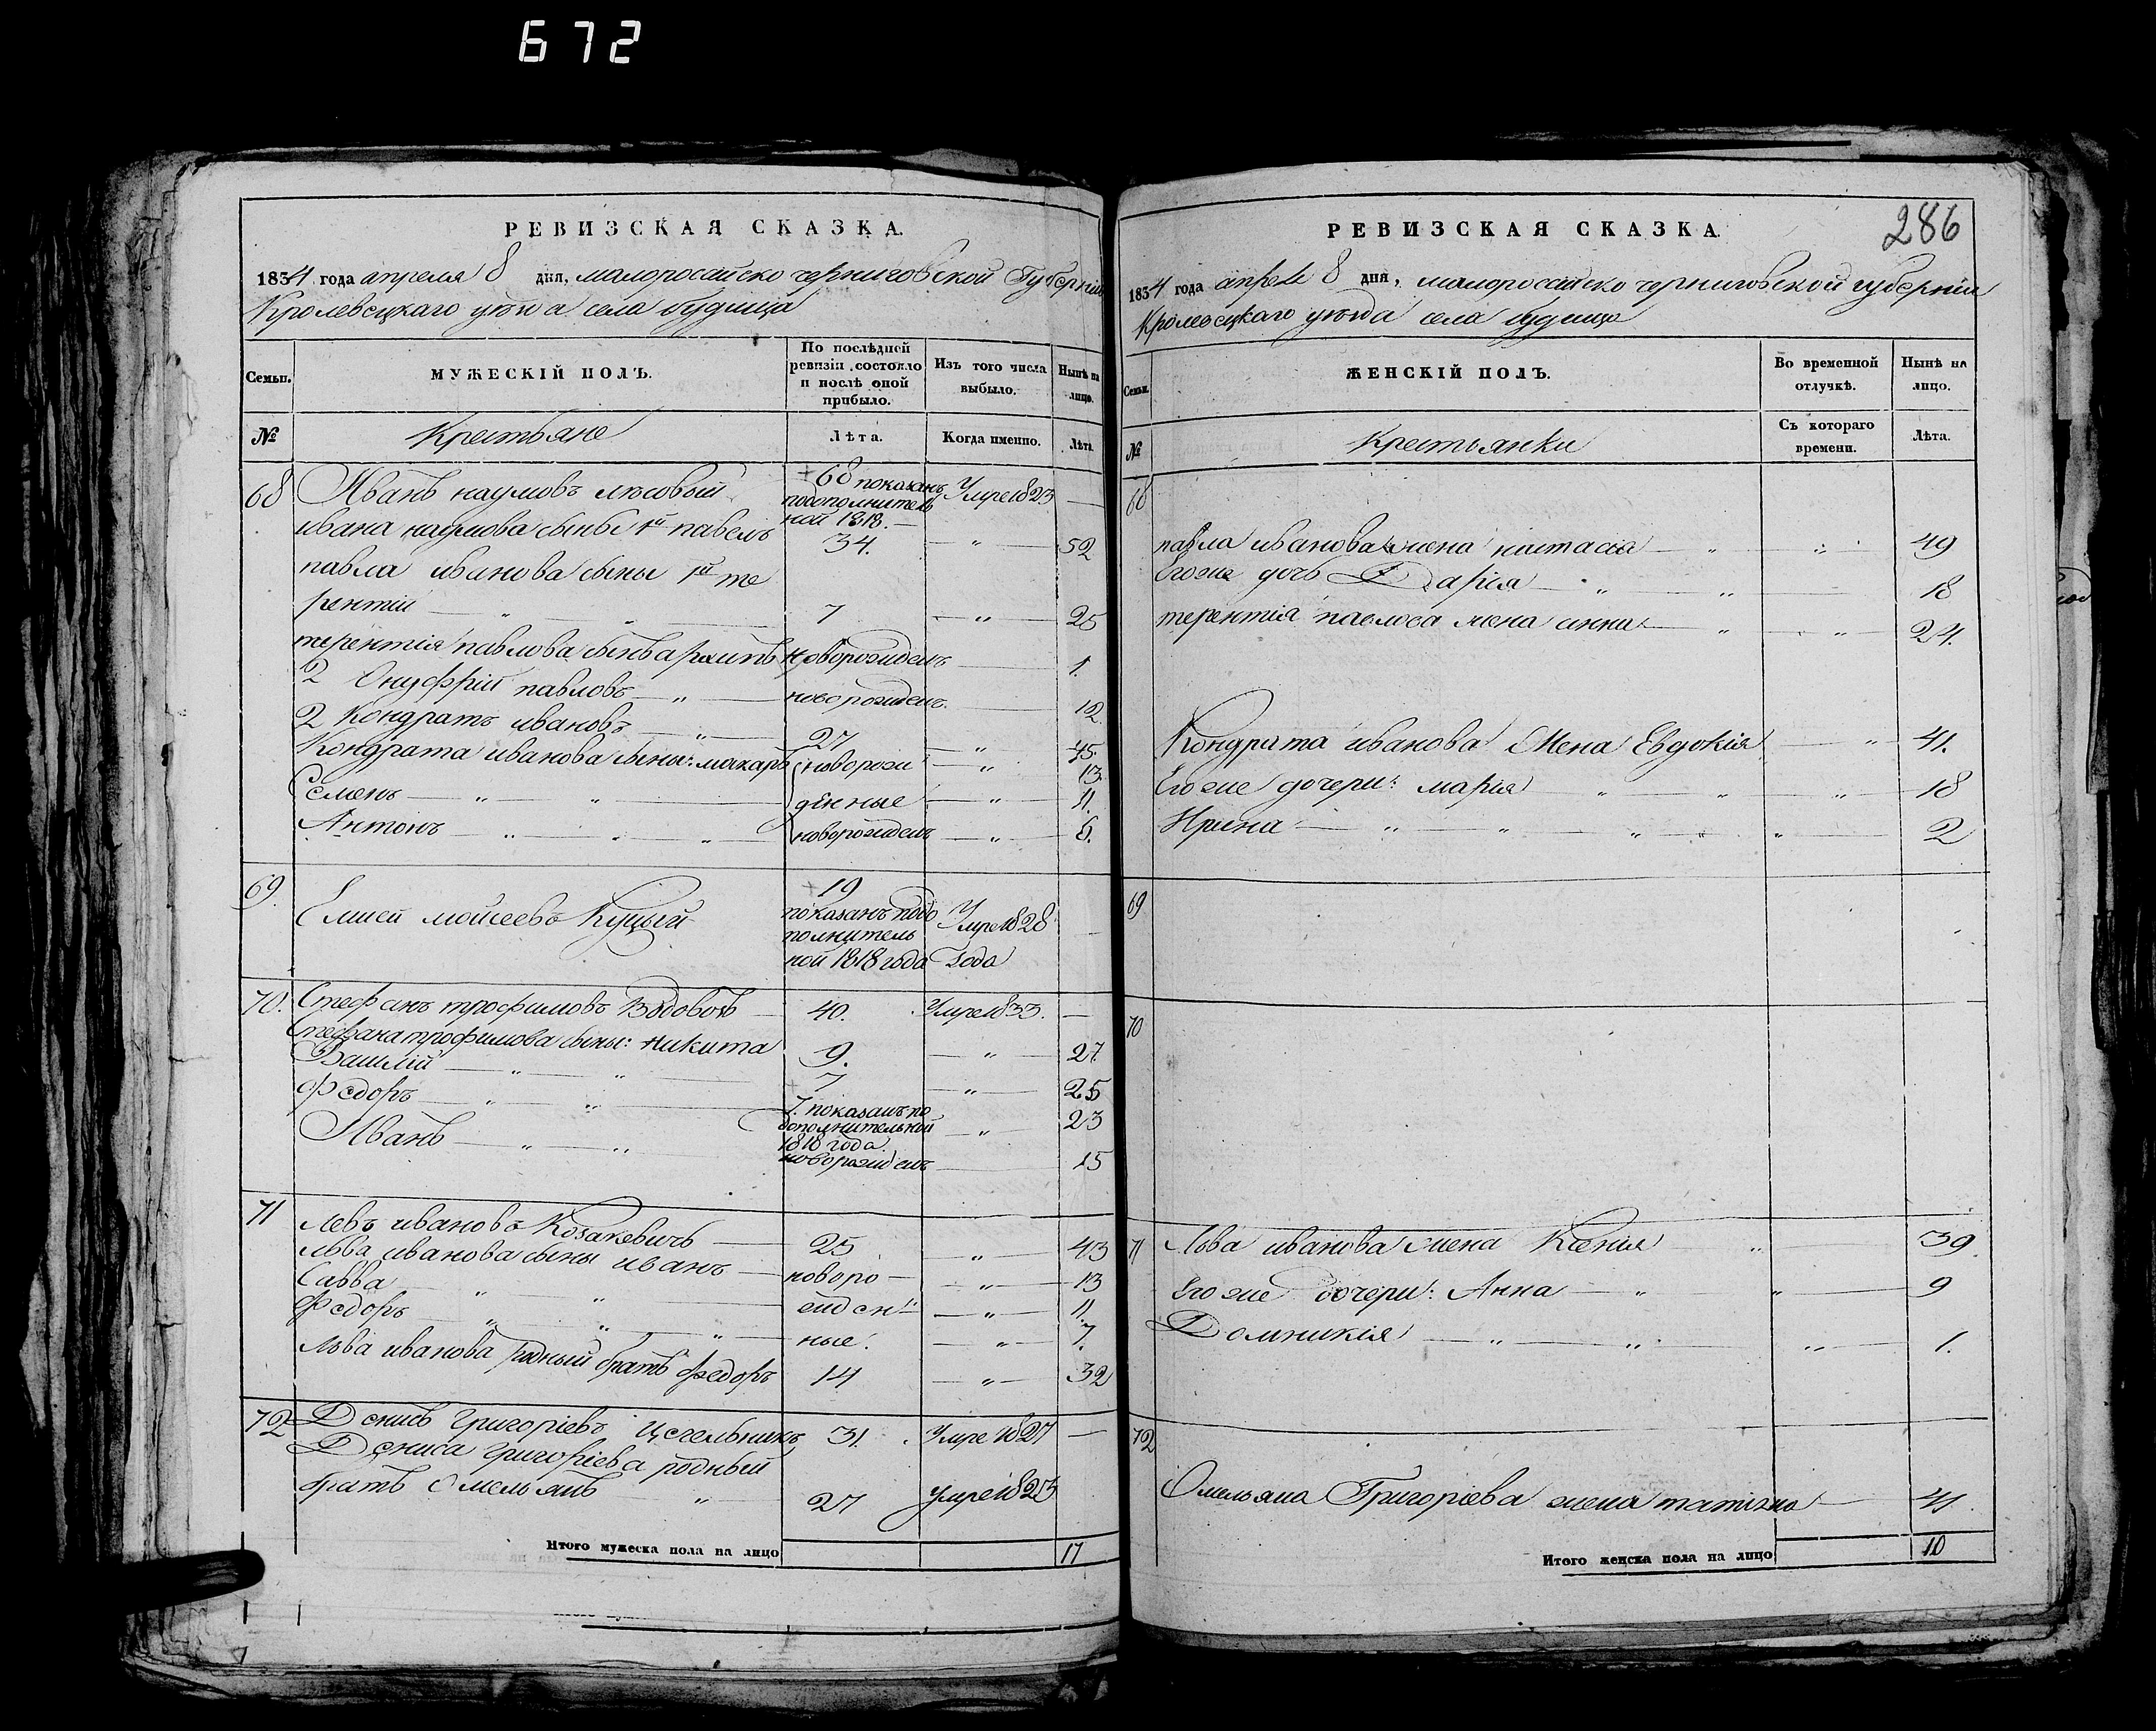 672
РЕВИЗСКАЯ СКАЗКА.
1834 года апреля 8 дня, малоросайско черниговской Губерніи
Кролевецкаго уезда села будища
Семьи.
МУЖЕСКІЙ ПОЛЪ.
По послѣдней ревизіи состояло и послѣ оной прибыло.
Изъ того числа выбыло.
Нынѣ на лицо.
№
Крестьяне
Лѣта.
Когда именно.
Лѣта.
68 Иванъ наумовъ лѣсовый 68 показанъ Умре 1823 —
подополнитель
ной 1818. —
ивана наумова сынъ 1й павелъ 34. — " — 52
павла иванова сыны 1й те
рентій — " 7 — " — 25
терентія павлова сынъ новорожденъ — 1.
2 Онуфрій павловъ — " — новорожденъ. — 12
2 Кондратъ ивановъ — " — 27 — " — 45.
Кондрата иванова сыны: макаръ новорож — " — 13
Семенъ — " " — денные — " — 11.
Антонъ — " " " — новорожденъ — " — 6.
69. Елисей мойсеевъ Куцый 19 Умре 1828 —
показанъ подо
полнитель
ной 1818 года года
70. Стефанъ трофимовъ Вдововъ 40. Умре 1833. —
Стефана трофимова сыны: никита 9. — " — 27
Василій — " " — 7 — " — 25
Федоръ — " " — 7. показанъ по — " — 23
дополнительной
1818 года.
Иванъ — " " новорожденъ — 15
71 Левъ ивановъ Козакевичъ — 25 — " — 43
Льва иванова сыны иванъ — новоро — — " — 13
Савва — " " — жден — " — 11.
Федоръ — " " " — ные. — " — 7.
Льва иванова родный братъ федоръ 14 — " — 32
72 Денисъ григоріевъ Цегельникъ 31. Умре 1827 —
Дениса григоріева родный
братъ Омельянъ — " — 27 умре 1823
Итого мужеска пола на лицо 17
286
РЕВИЗСКАЯ СКАЗКА.
1834 года апреля 8 дня, малоросайско черниговской губерніи
Кролевецкаго уезда села будища
Семьи.
ЖЕНСКІЙ ПОЛЪ.
Во временной отлучкѣ.
Нынѣ на лицо.
№
Крестьянки
Съ котораго времени.
Лѣта.
68
павла иванова жена настасія — " — " — 49
Егоже дочь Дарія — " " — 18
терентія павлова жена анна — " — " — 24.
Кондрата иванова жена Евдокія — " — 41.
Егоже дочери: марія — " " — " — 18
Ирина — " " " " " — 2
69
70
71 Льва иванова жена Ксенія — " 39.
Егоже дочери: Анна — " — " — 9
Домникія — " — " — " — 1.
72
Омельяна Григоріева жена татіяна — 41.
Итого женска пола на лицо 10